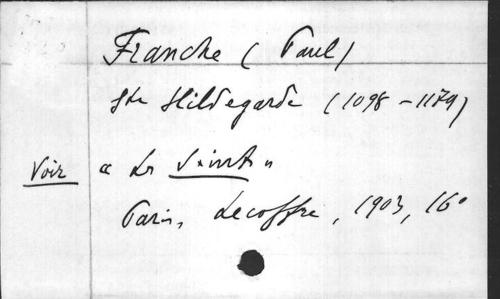 Franche (Paul)
Ste Hildegarde (1098-1179)
Voir « Les Saints »
Paris, Lecoffre, 1903, 16°